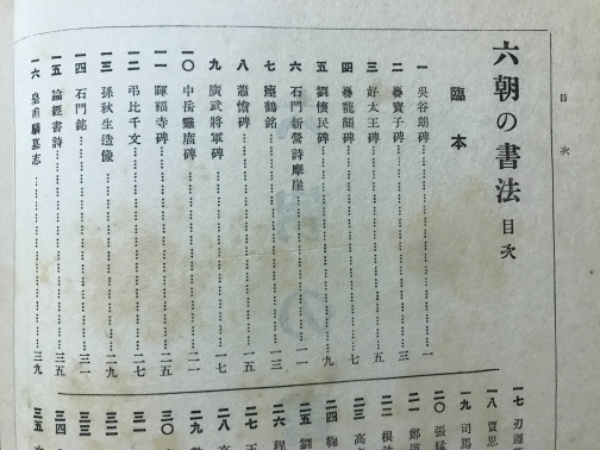 目次
六朝の書法 目次
臨本
一 吳谷朗碑 一
二 爨寶子碑 三
三 好太王碑 五
四 爨龍顏碑 七
五 劉懷民碑 九
六 石門新營詩摩崖
七 瘞鶴銘 一三
八 蕭憺碑 一五
九 廣武將軍碑 一七
一〇 中岳靈廟碑 二一
一一 暉福寺碑 二五
一二 弔比干文 二七
一三 孫秋生造像 二九
一四 石門銘 三一
一五 論經書詩 三五
一六 皇甫驎墓志 三九
一七 刁遵
一八 賈思
一九 司馬
二〇 張猛
二一 鄭道
二二 根法
二三 高
二四 鞠
二五 劉
二六 程
二七 王
二八 高
二九
三〇
三一
三二
三三
三四
三五